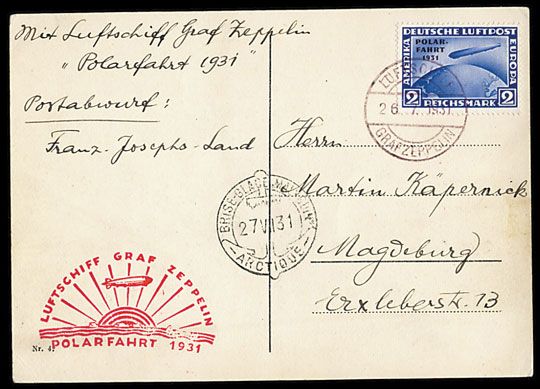 Mit Luftschiff Graf Zeppelin
"Polarfahrt 1931"
Postabwurf:
Franz-Josephs-Land
DEUTSCHE LUFTPOST
POLAR-
FAHRT
1931
AMERIKA
EUROPA
2 REICHSMARK 2
LUFTSCHIFF
26. 7. 1931
GRAF ZEPPELIN
Herrn
Martin Käpernick
Magdeburg
Erxleberstr. 13
BRISE-GLACE
27 VII 31
ARCTIQUE
LUFTSCHIFF GRAF ZEPPELIN
POLARFAHRT 1931